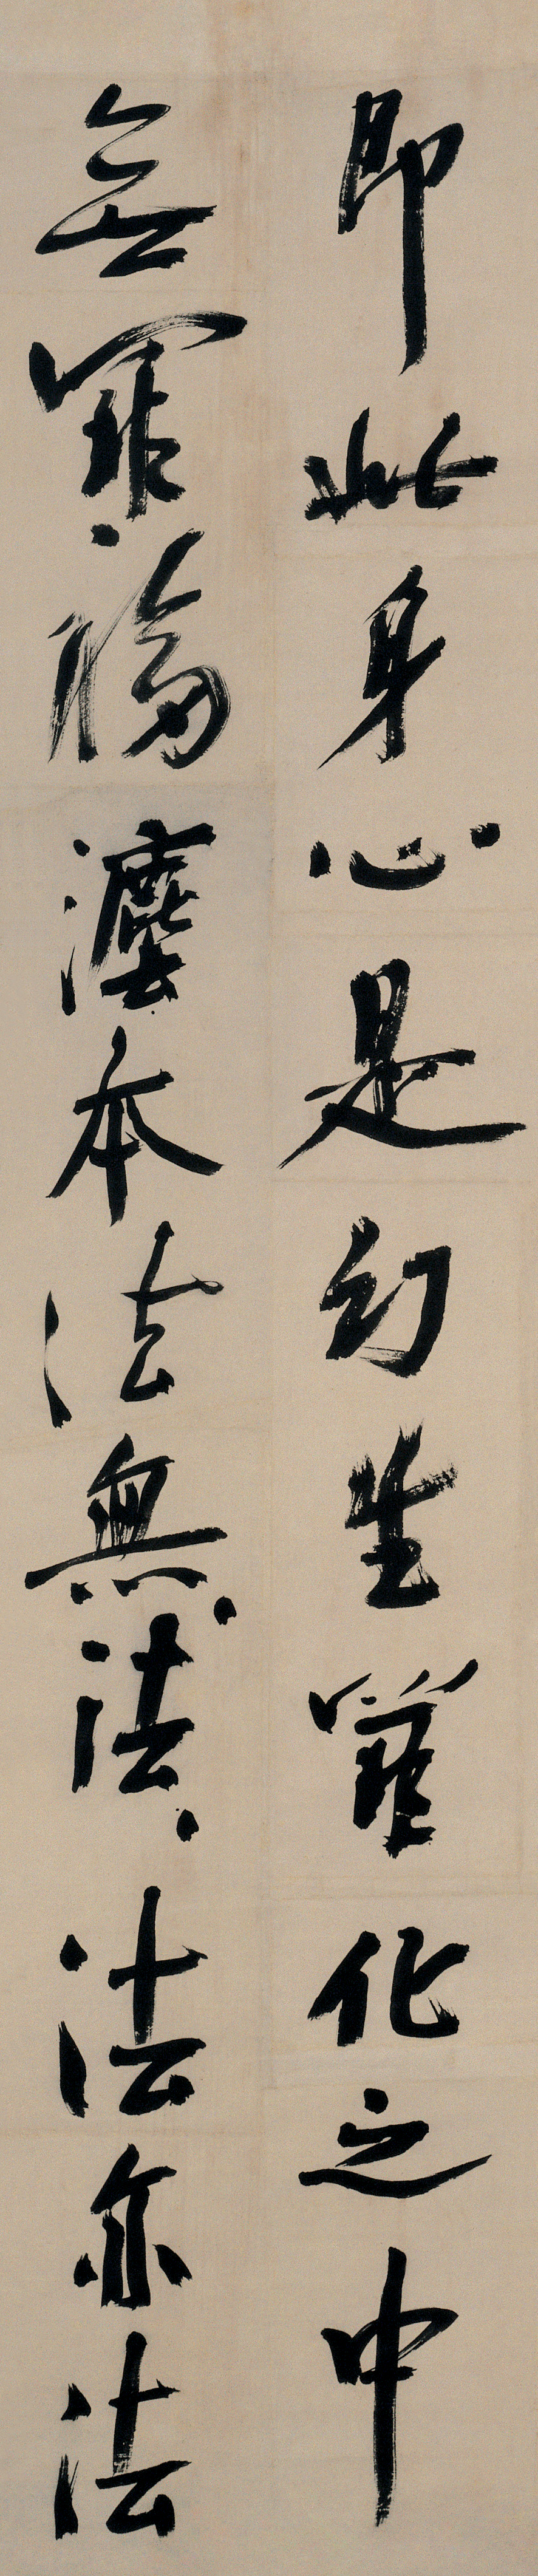 即此身心是幻生罪化之中
無罪福灋本法無〻法〻法亦法